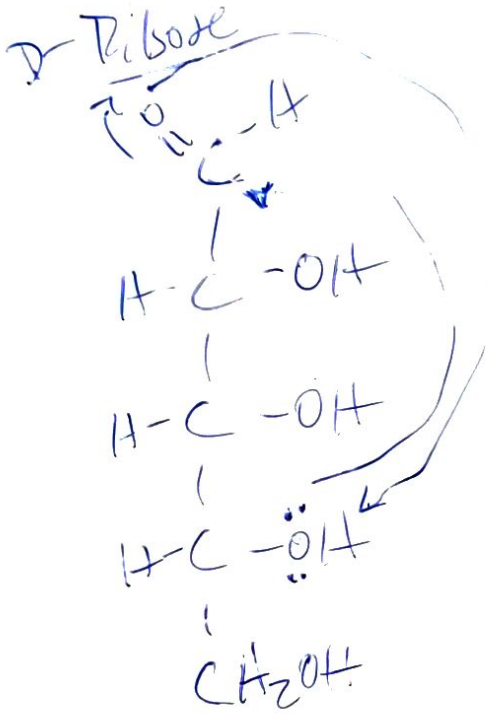 D-Ribose
O
=
C-H
H-C-OH
H-C-OH
H-C-OH
CH2OH